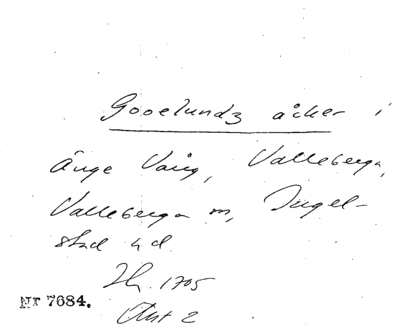 Gooelundz åcker i
Änge Vång, Valleberga,
Valleberga sn, Ingel-
stad hd
Lh. 1705
Akt 2
Nr 7684.